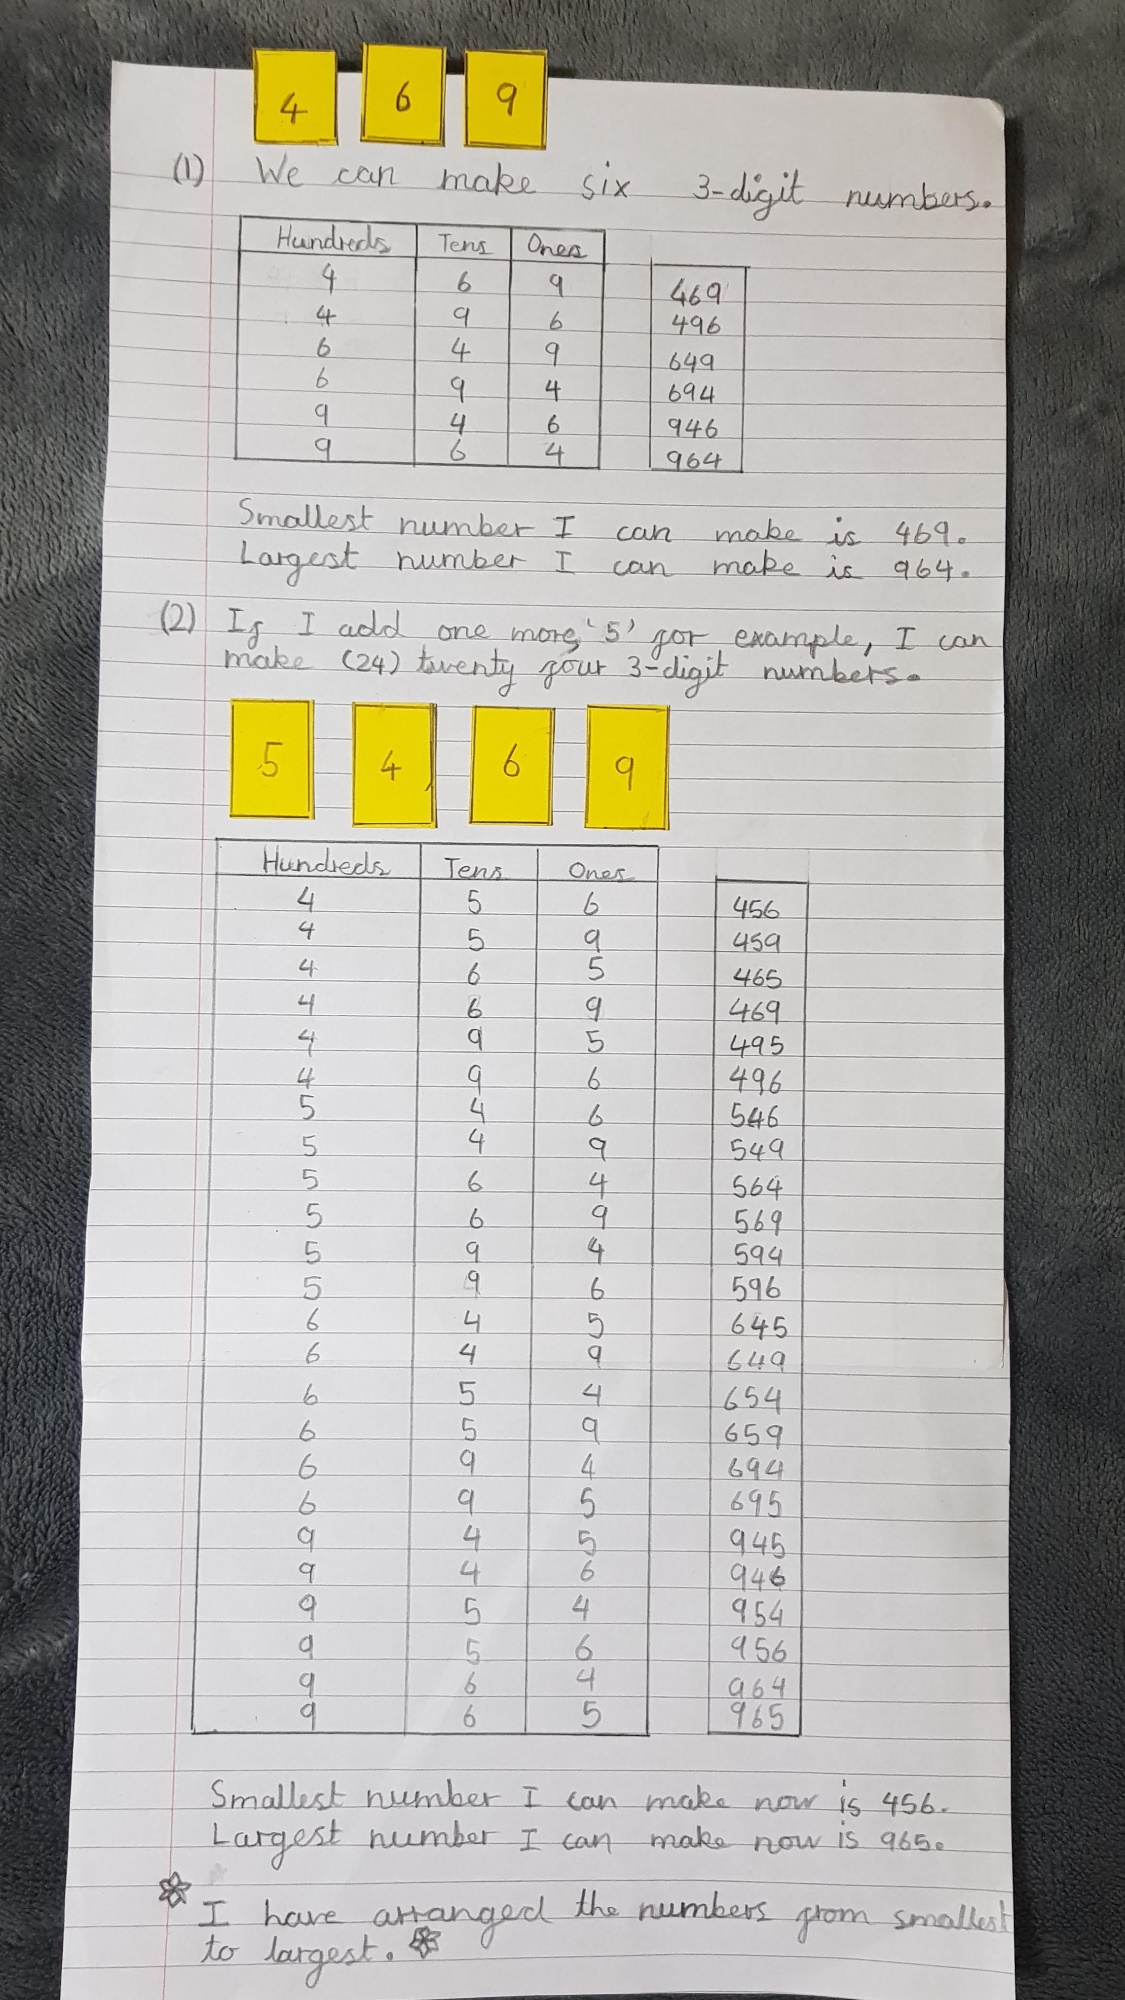 4 6 9
(1) We can make six 3-digit numbers.
Hundreds Tens Ones
4 6 9 469
4 9 6 496
6 4 9 649
6 9 4 694
9 4 6 946
9 6 4 964
Smallest number I can make is 469.
Largest number I can make is 964.
(2) If I add one more, '5' for example, I can
make (24) twenty four 3-digit numbers.
5 4 6 9
Hundreds Tens Ones
4 5 6 456
4 5 9 459
4 6 5 465
4 6 9 469
4 9 5 495
4 9 6 496
5 4 6 546
5 4 9 549
5 6 4 564
5 6 9 569
5 9 4 594
5 9 6 596
6 4 5 645
6 4 9 649
6 5 4 654
6 5 9 659
6 9 4 694
6 9 5 695
9 4 5 945
9 4 6 946
9 5 4 954
9 5 6 956
9 6 4 964
9 6 5 965
Smallest number I can make now is 456.
Largest number I can make now is 965.
I have arranged the numbers from smallest
to largest.